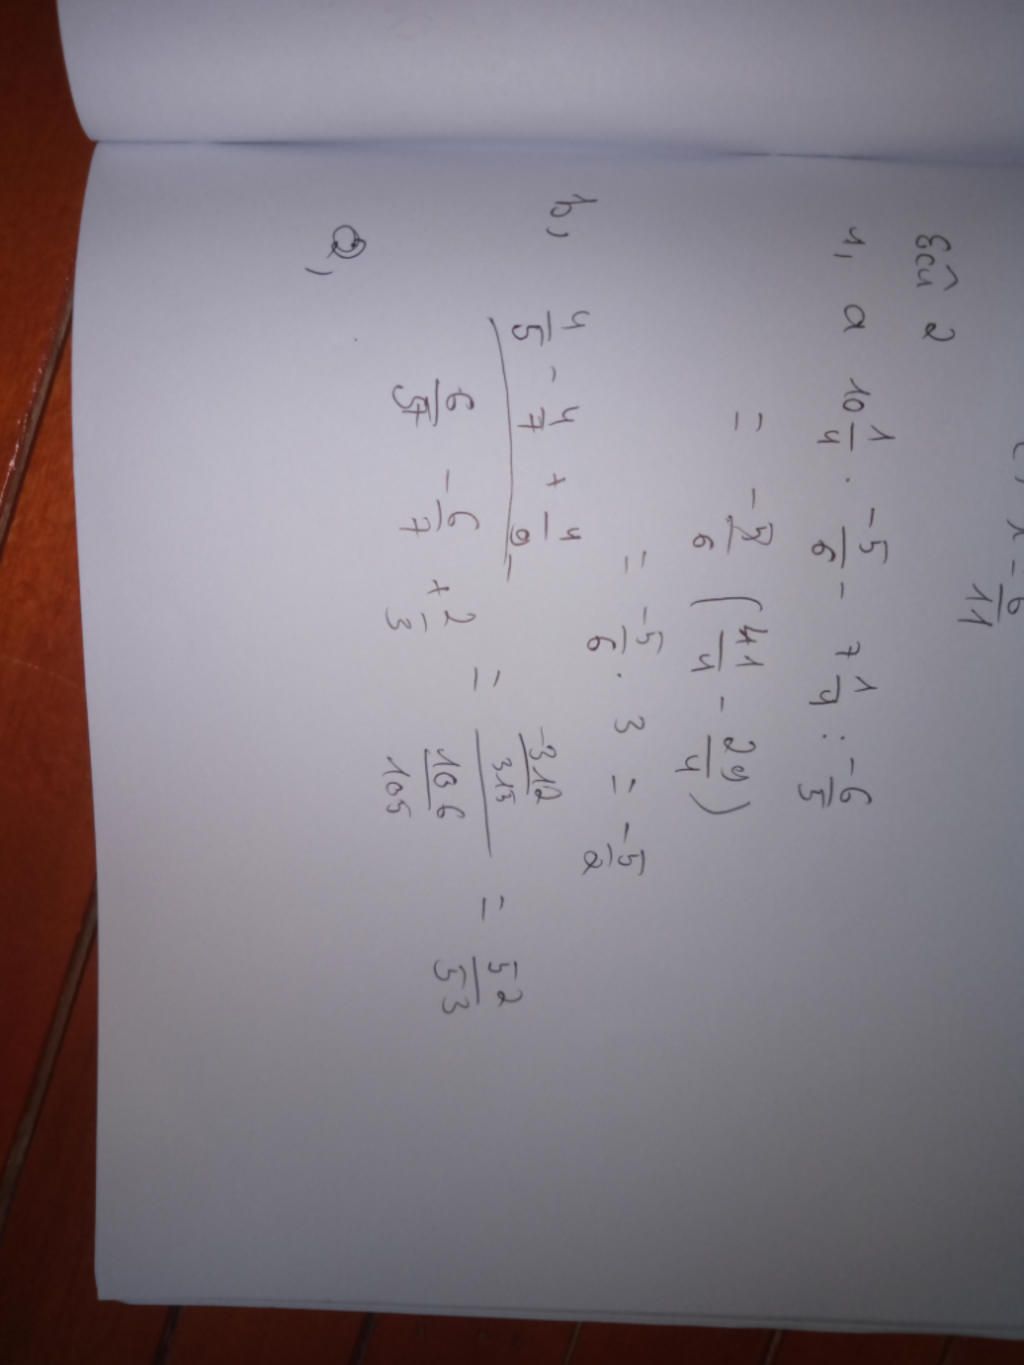 x - 6/11
Câu 2
1, a 10 1/4 . -5/6 - 7 1/4 : -6/5
= -5/6 (41/4 - 29/4)
= -5/6 . 3 = -5/2
b, (4/5 - 4/7 + 4/9) / (6/5 - 6/7 + 2/3) = (-312/315) / (106/105) = 52/53
2,